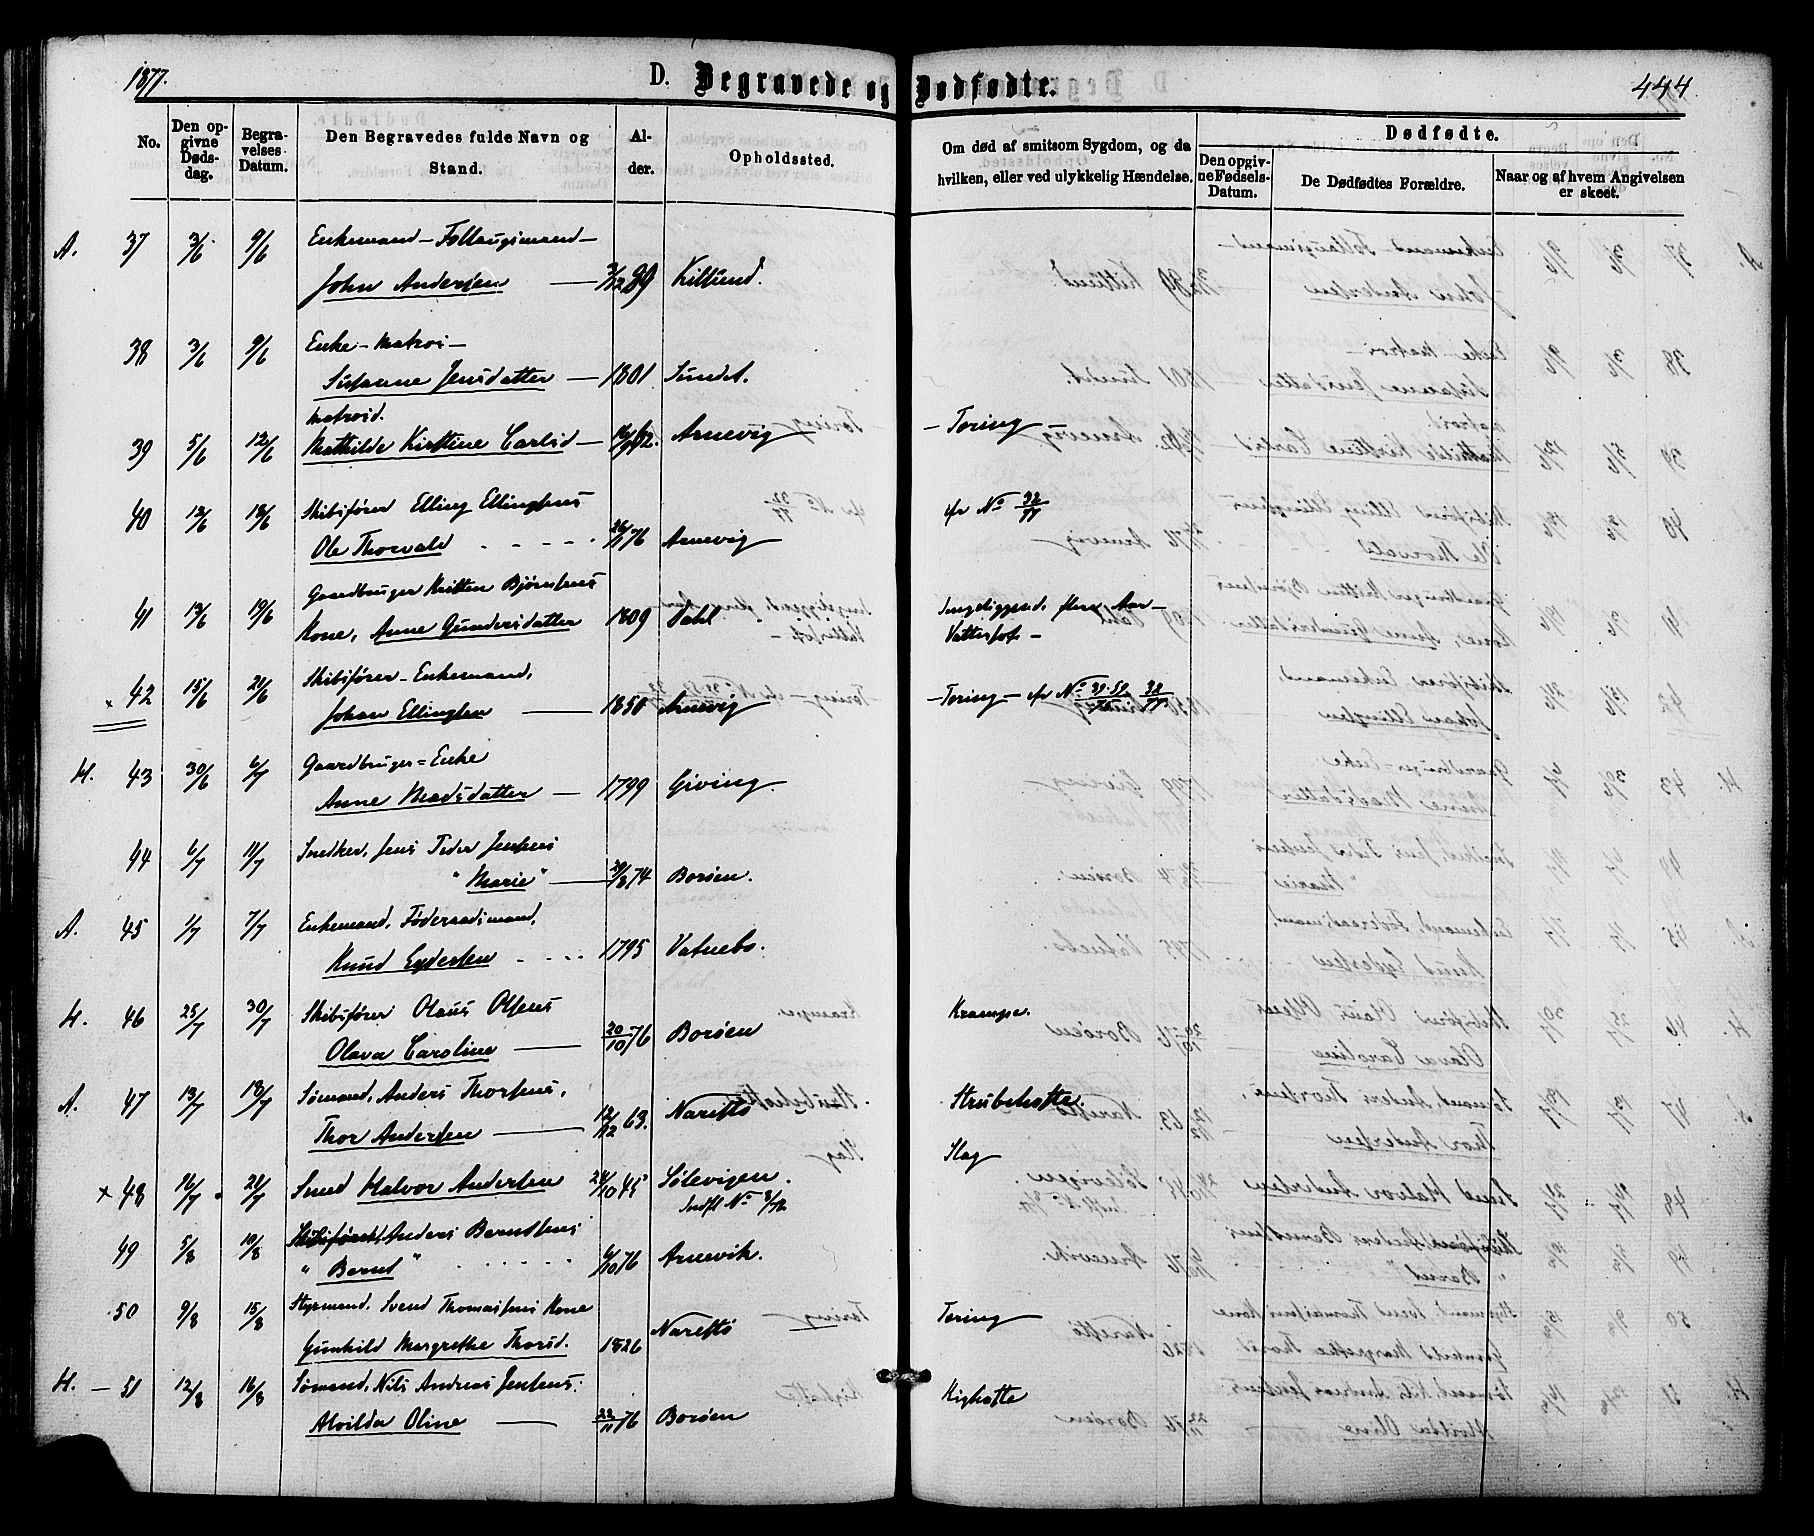 1877.
D. Begravede og Dødfødte.
444
No.
Den opgivne Dødsdag.
Begravelses Datum.
Den Begravedes fulde Navn og Stand.
Alder.
Opholdssted.
Om død af smitsom Sygdom, og da hvilken, eller ved ulykkelig Hændelse.
Dødfødte.
Den opgivne Fødsels-Datum.
De Dødfødtes Forældre.
Naar og af hvem Angivelsen er skeet.
A. 37 3/6 9/6 Enkemand-
John Andersen — 3/12 89 Killund.
38 3/6 9/6 Enke-Matros-
Susanne Jensdatter — 1801 Sundet.
Matrosd.
39 5/6 12/6 Mathilde Kirstine Carlsd — 62. Arnevig — Tæring —
40 12/6 18/6 Skibsfører Elling Ellingsens
Ole Thorvald 26/11 76 Arnevig cfr No 32/77
41 13/6 19/6 Gaardbruger Kristen Bjørnsens
Kone, Anne Gundersdatter 1809 Dahl Sengeliggend. flere Aar-
Vattersot-
x 42 15/6 21/6 Skibsfører-Enkemand,
Johan Ellingsen — 1850 Arnevig — Tæring — cfr No 39.52/76 32/77
H. 43 30/6 6/7 Gaardbruger=Enke
Anne Madsdatter — 1799 Giving.
44 6/7 11/7 Snedker, Jens Peder Jensens
"Marie" — 74 Borøen.
A. 45 1/7 7/7 Enkemand, Føderaadsmand,
Knud Eydersen 1795 Vatnebo.
H. 46 25/7 30/7 Skibsfører Olaus Olsens
Olava Caroline — 20/10 76 Borøen Krampe.
A. 47 13/7 18/7 Sømand, Anders Thorsens,
Thor Andersen — 12/12 63. Narestø Strubehoste.
x 48 16/7 21/7 Smed Halvor Andersen 24/10 45 Sølevigen. Slag
Indfl No 3/78
49 5/8 10/8 Skibsfører, Anders Berntsens
"Bernt" 6/10 76 Arnevik.
50 9/8 15/8 Styrmand, Svend Thomassens Kone
Gunhild Margrethe Thorsd. 1826 Narestø Tæring
H. — 51 12/8 16/8 Sømand, Nils Andreas Jensens.
Alvilda Oline — 22/11 76 Borøen Kighoste